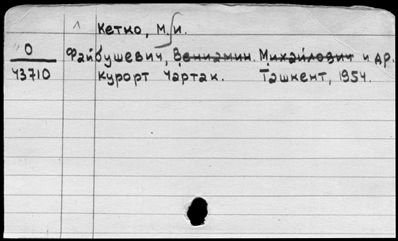 Кетко, М. И.
О Файбушевич, Вениамин Михайлович и др.
43710 Курорт Чартак. Ташкент, 1954.